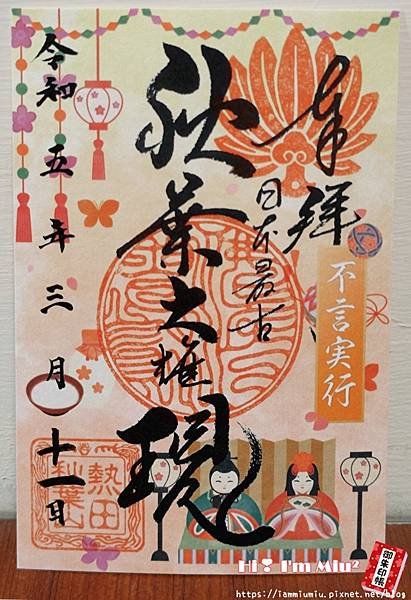 奉拝
日本最古
不言実行
秋葉大権現
令和五年三月十一日
熱田
秋葉山
Hi I'm Miu²
御朱印帳
https://iammiumiu.pixnet.net/blog